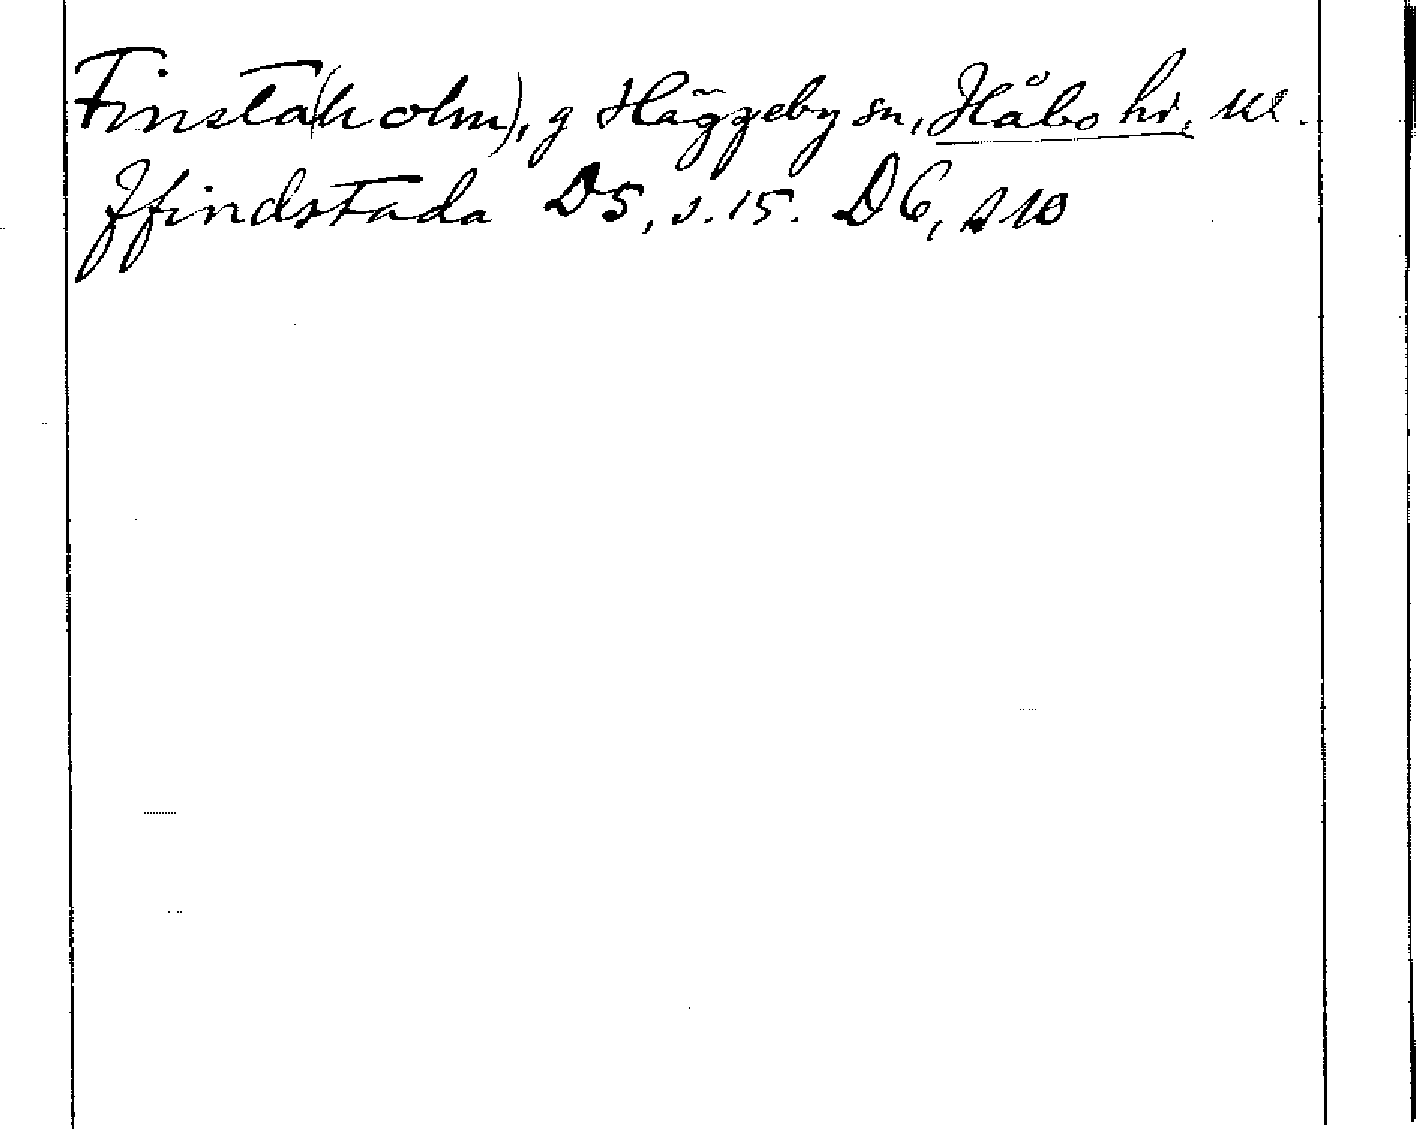 Finsta(holm), g Häggeby sn, Håbo hd, Ul.
ffindstada D5, s.15. D6, s 10